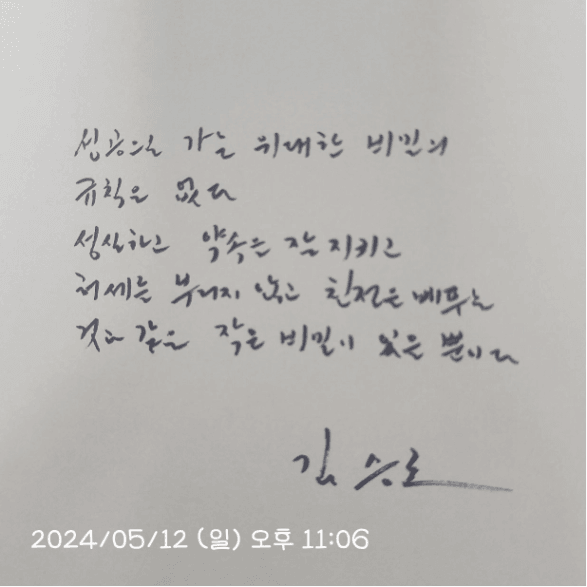 성공으로 가는 위대한 비밀의
규칙은 없다
성실하고 약속은 잘 지키고
허세는 부리지 않고 친절은 베푸는
것과 같은 작은 비밀이 있을 뿐이다
김승호
2024/05/12 (일) 오후 11:06